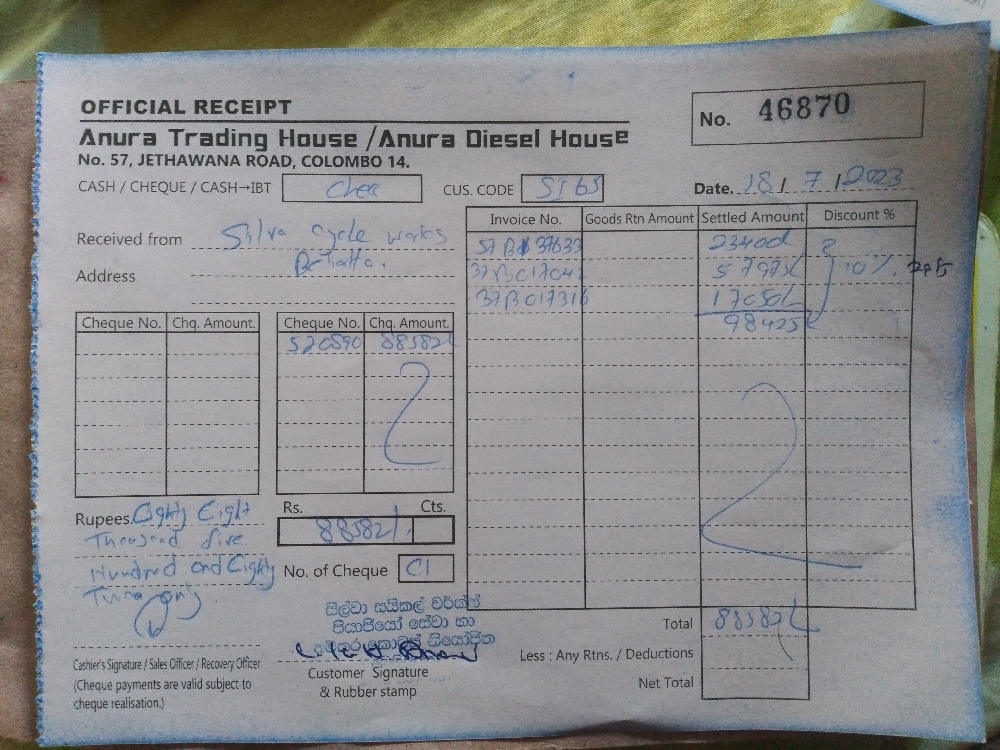 OFFICIAL RECEIPT
No. 46870
Anura Trading House /Anura Diesel House
No. 57, JETHAWANA ROAD, COLOMBO 14.
CASH / CHEQUE / CASH→IBT
CUS. CODE SI 65
Date. 18 / 7 / 2023
Received from Silva Cycle works
Address
Invoice No. Goods Rtn Amount Settled Amount Discount %
10%
37B017041 57975/
37B017316 17050/
98425/
Cheque No. Chq. Amount. Cheque No. Chq. Amount.
520590 88582/
Rupees. Eighty Eight
Thousand five
Hundred and Eighty
Two only
Rs. Cts.
88582/.
No. of Cheque 01
සිල්වා සයිකල් වර්ක්ස්
පියාජියෝ සේවා හා
Cashier's Signature / Sales Officer / Recovery Officer
(Cheque payments are valid subject to
cheque realisation.)
Customer Signature
& Rubber stamp
Total 88582/
Less : Any Rtns. / Deductions
Net Total